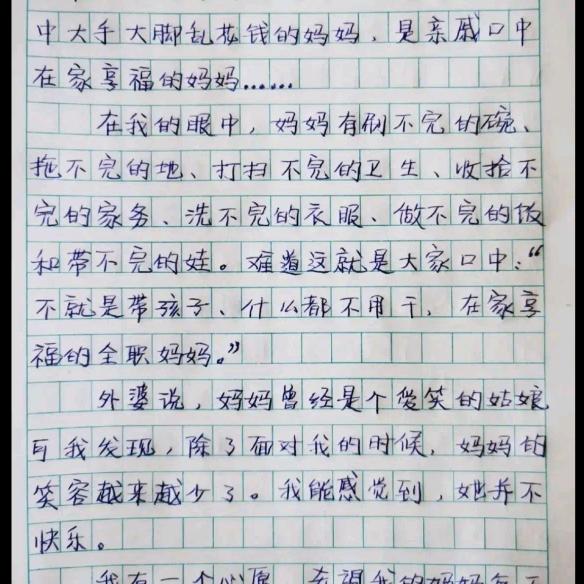 中大手大脚乱花钱的妈妈，是亲戚口中
在家享福的妈妈……
在我的眼中，妈妈有刷不完的碗、
拖不完的地、打扫不完的卫生、收拾不
完的家务、洗不完的衣服、做不完的饭
和带不完的娃。难道这就是大家口中：“
不就是带孩子、什么都不用干，在家享
福的全职妈妈。”
外婆说，妈妈曾经是个爱笑的姑娘
可我发现，除了面对我的时候，妈妈的
笑容越来越少了。我能感觉到，她并不
快乐。
我有一个心愿，希望我的妈妈每天